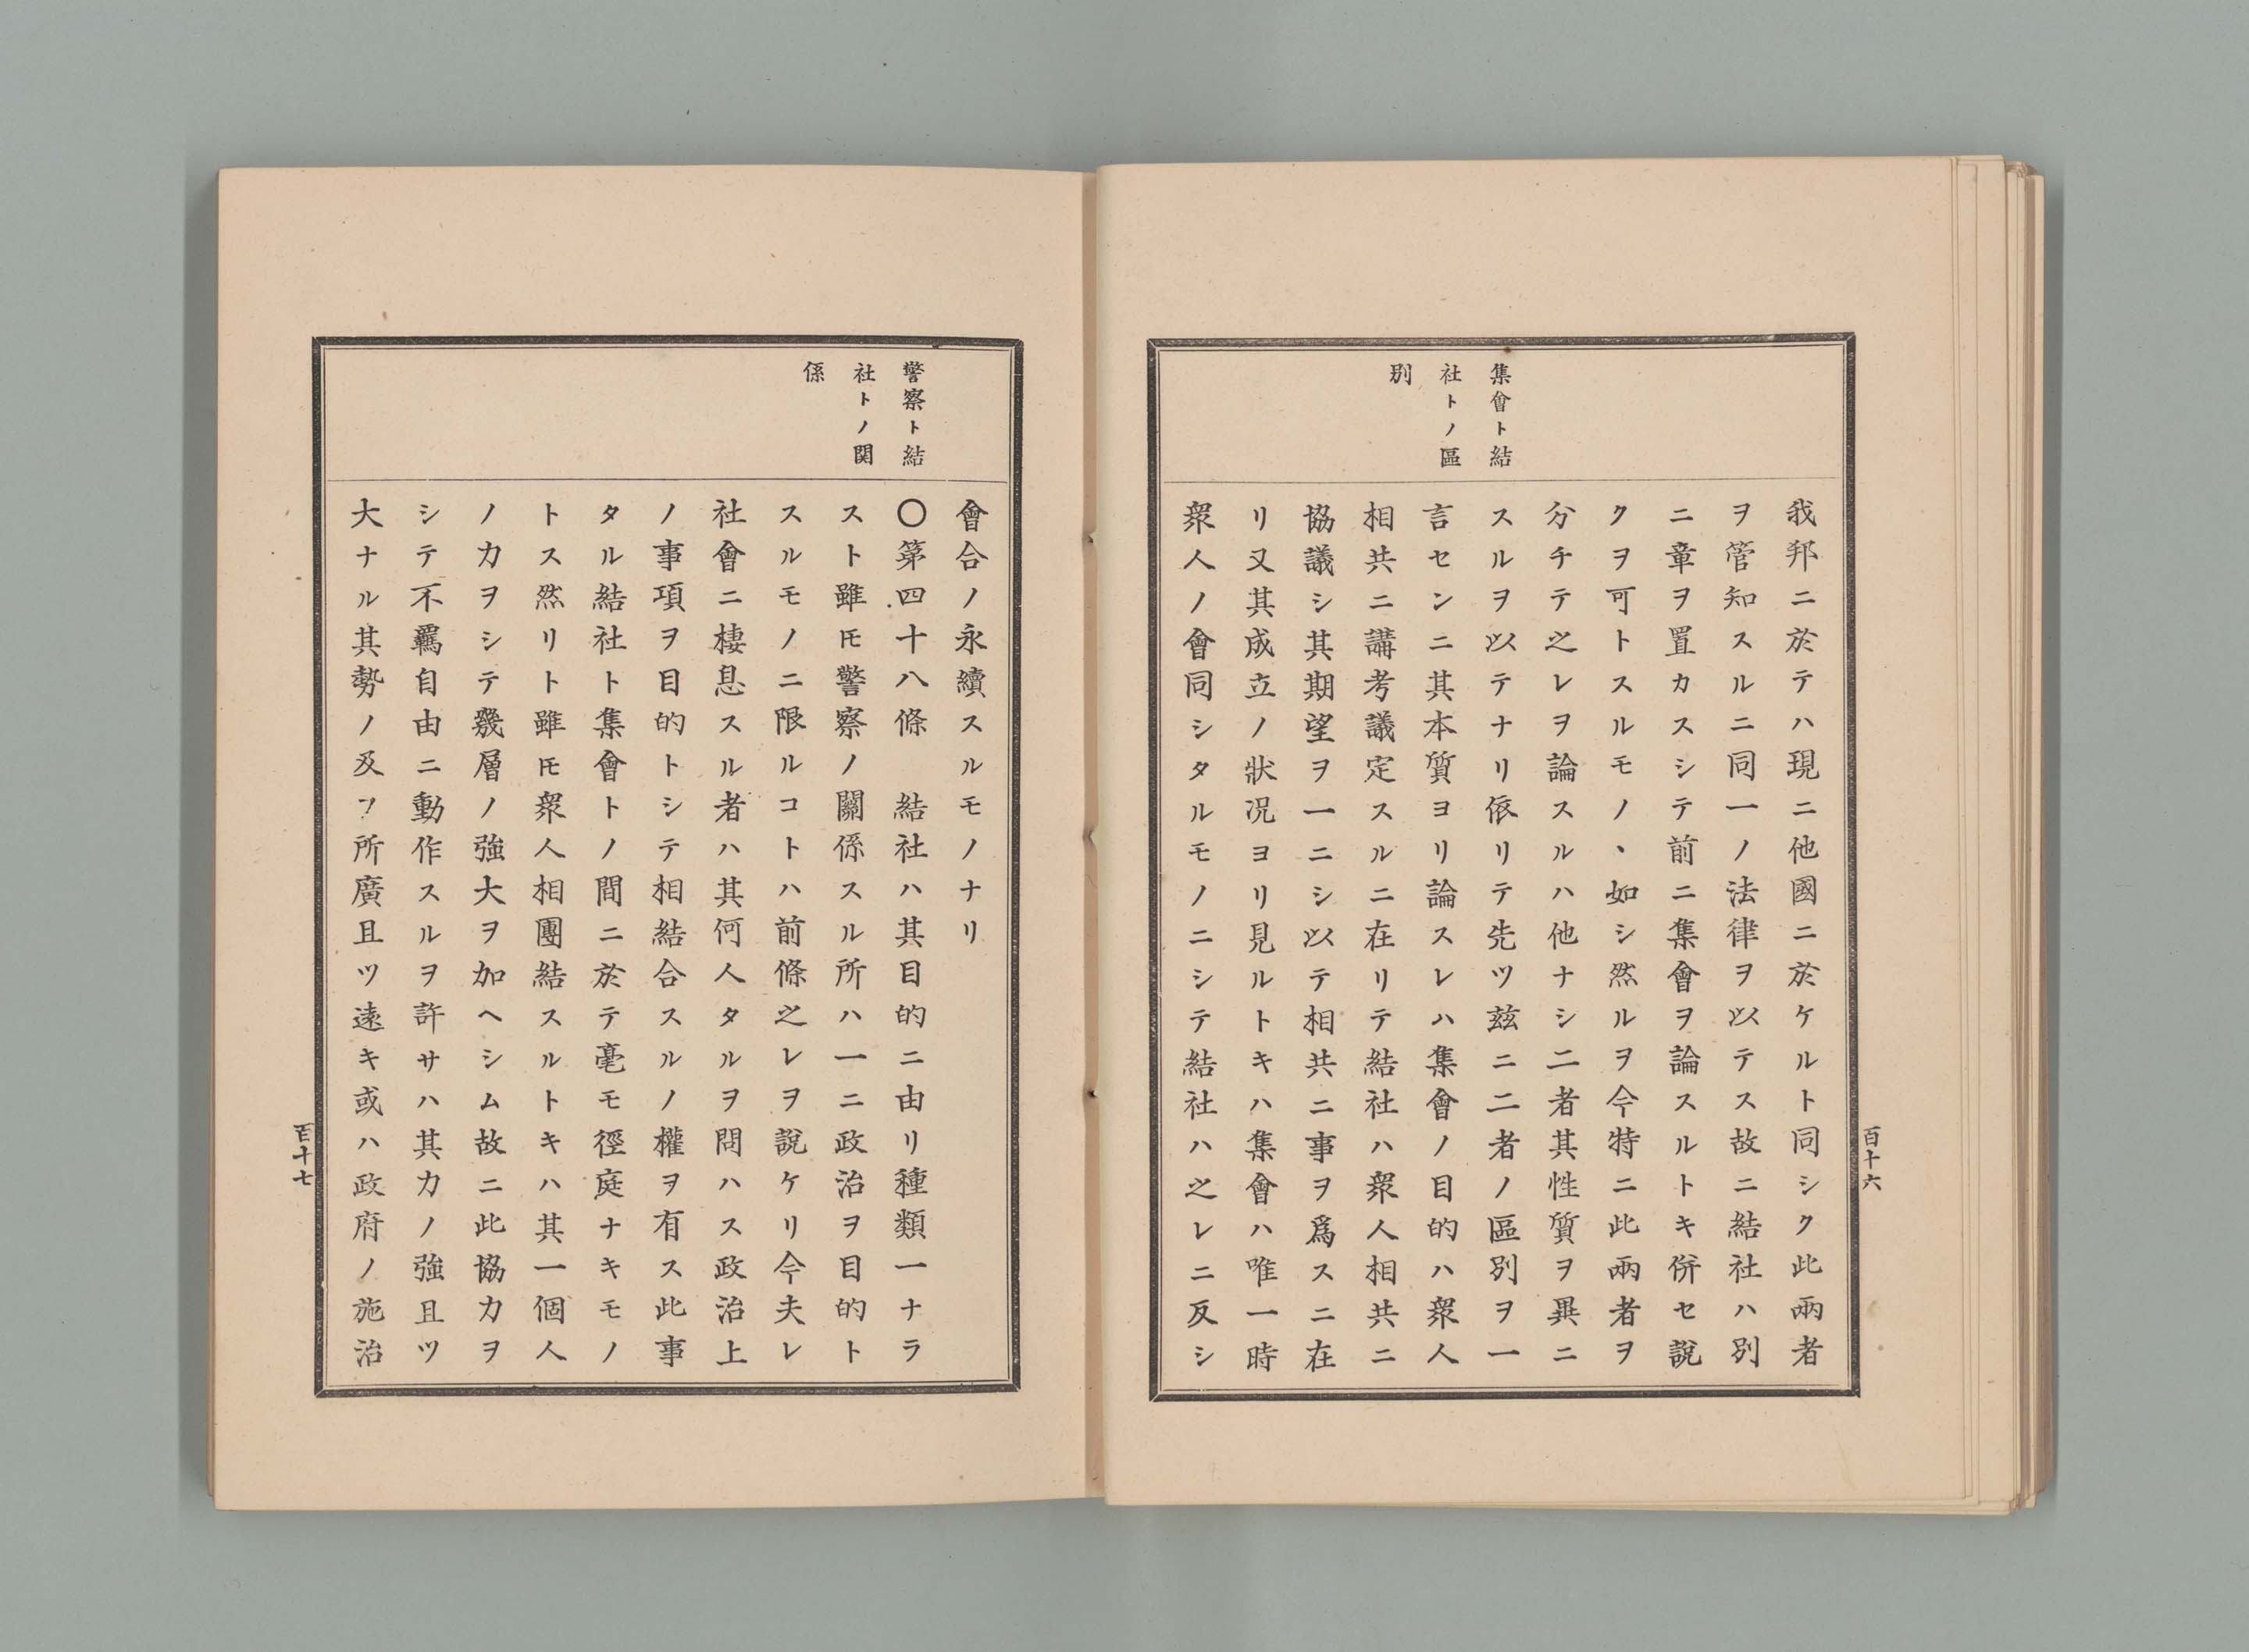 集會ト結
社トノ區
別
我邦ニ於テハ現ニ他國ニ於ケルト同シク此兩者
ヲ管知スルニ同一ノ法律ヲ以テス故ニ結社ハ別
ニ章ヲ置カスシテ前ニ集會ヲ論スルトキ併セ說
クヲ可トスルモノヽ如シ然ルヲ今特ニ此兩者ヲ
分チテ之レヲ論スルハ他ナシ二者其性質ヲ異ニ
スルヲ以テナリ依リテ先ツ玆ニ二者ノ區別ヲ一
言センニ其本質ヨリ論スレハ集會ノ目的ハ衆人
相共ニ講考議定スルニ在リテ結社ハ衆人相共ニ
協議シ其期望ヲ一ニシ以テ相共ニ事ヲ爲スニ在
リ又其成立ノ狀况ヨリ見ルトキハ集會ハ唯一時
衆人ノ會同シタルモノニシテ結社ハ之レニ反シ
百十六
警察ト結
社トノ関
係
會合ノ永續スルモノナリ
〇第四十八條　結社ハ其目的ニ由リ種類一ナラ
スト雖𪜈警察ノ關係スル所ハ一ニ政治ヲ目的ト
スルモノニ限ルコトハ前條之レヲ說ケリ今夫レ
社會ニ棲息スル者ハ其何人タルヲ問ハス政治上
ノ事項ヲ目的トシテ相結合スルノ權ヲ有ス此事
タル結社ト集會トノ間ニ於テ毫モ徑庭ナキモノ
トス然リト雖𪜈衆人相團結スルトキハ其一個人
ノ力ヲシテ幾層ノ強大ヲ加ヘシム故ニ此協力ヲ
シテ不羈自由ニ動作スルヲ許サハ其力ノ強且ツ
大ナル其勢ノ及フ所廣且ツ遠キ或ハ政府ノ施治
百十七